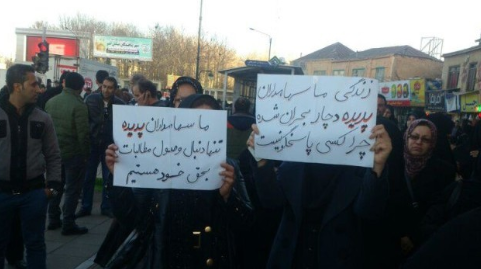 ما سهامداران پدیده
تنها دنبال وصول مطالبات
بحق خود هستیم
زندگی ما سهامداران
پدیده دچار بحران شده
چرا کسی پاسخگو نیست